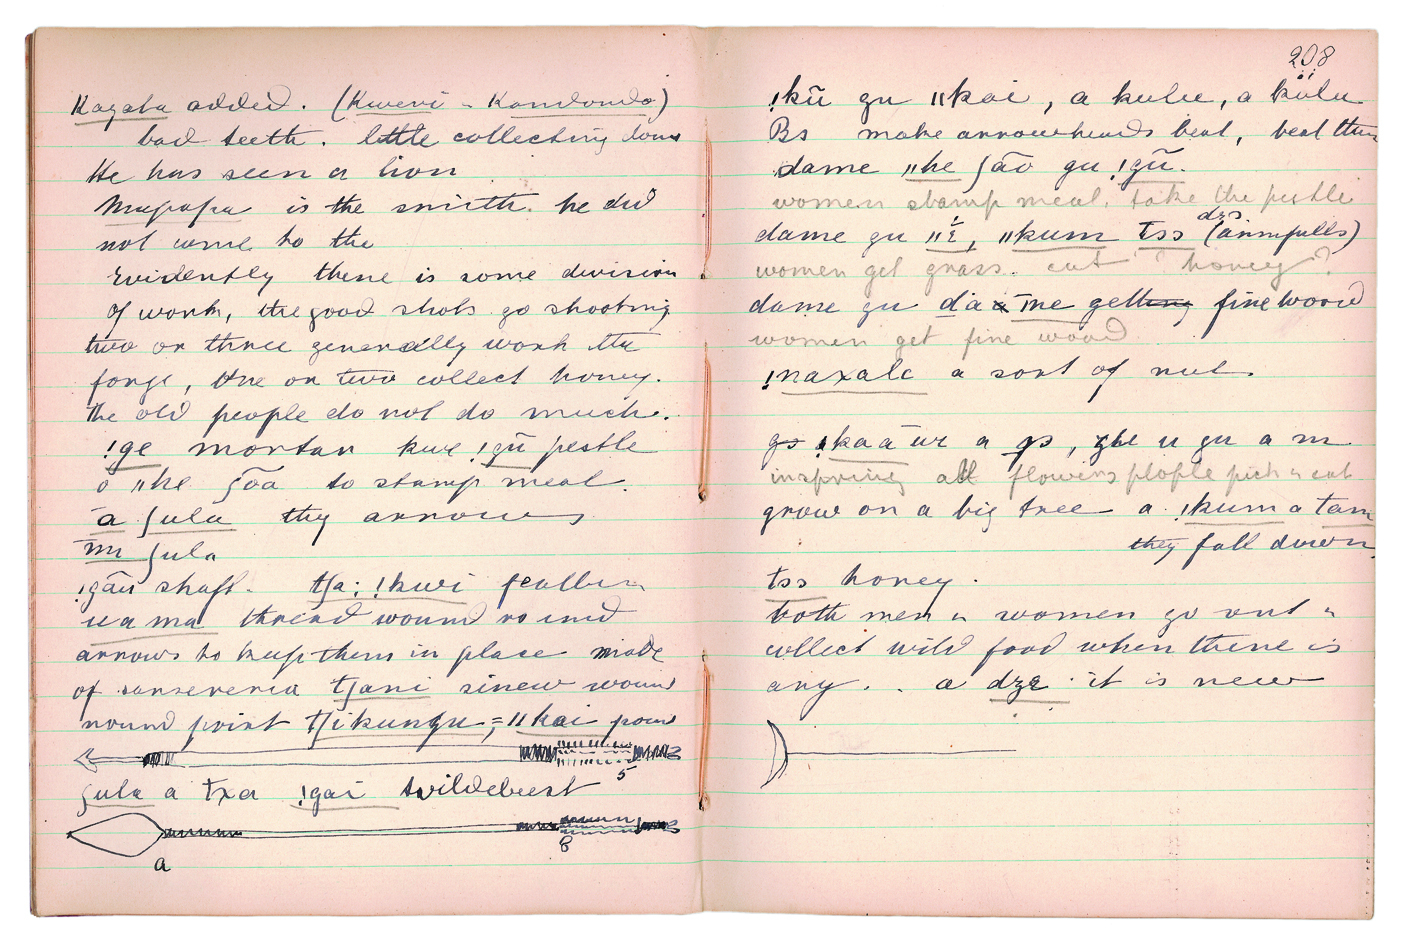 Kagala added. (Kweri - Kandondo)
bad teeth. little collecting done
He has seen a lion
Mugafa is the smith. he did
not come to the
Evidently there is some division
of work, the good shots go shooting
two or three generally work the
forge, one or two collect honey.
the old people do not do much.
!ge mortar kwe !gũ pestle
o ǁhe ʃõa to stamp meal.
a ʃula they arrows
m ʃula
!gãu shaft. tʃa: !kwi feather
ua ma thread wound round
arrows to keep them in place made
of sanseveria tʃani sinew wound
round point tʃikungu, = ǁkai poison
5
ʃula a txa !gai wildebeest
8
a
208
!kũ gu ǁkai, a kulu, a kulu
Bs make arrowheads beat, beat them
dame ǁhe ʃão gu !gũ.
women stamp meal. take the pestle
dame gu ǁ, ǁkum tss (armfulls)
women get grass. cut honey?
dame gu da ine getting fine wood
women get fine wood
!naxale a sort of nut
gs !kaa we a gs, u gu a m
in spring all flowers people pick & eat
grow on a big tree a !kum a tam
they fall down,
tss honey.
both men & women go out &
collect wild food when there is
any. . a dze it is new